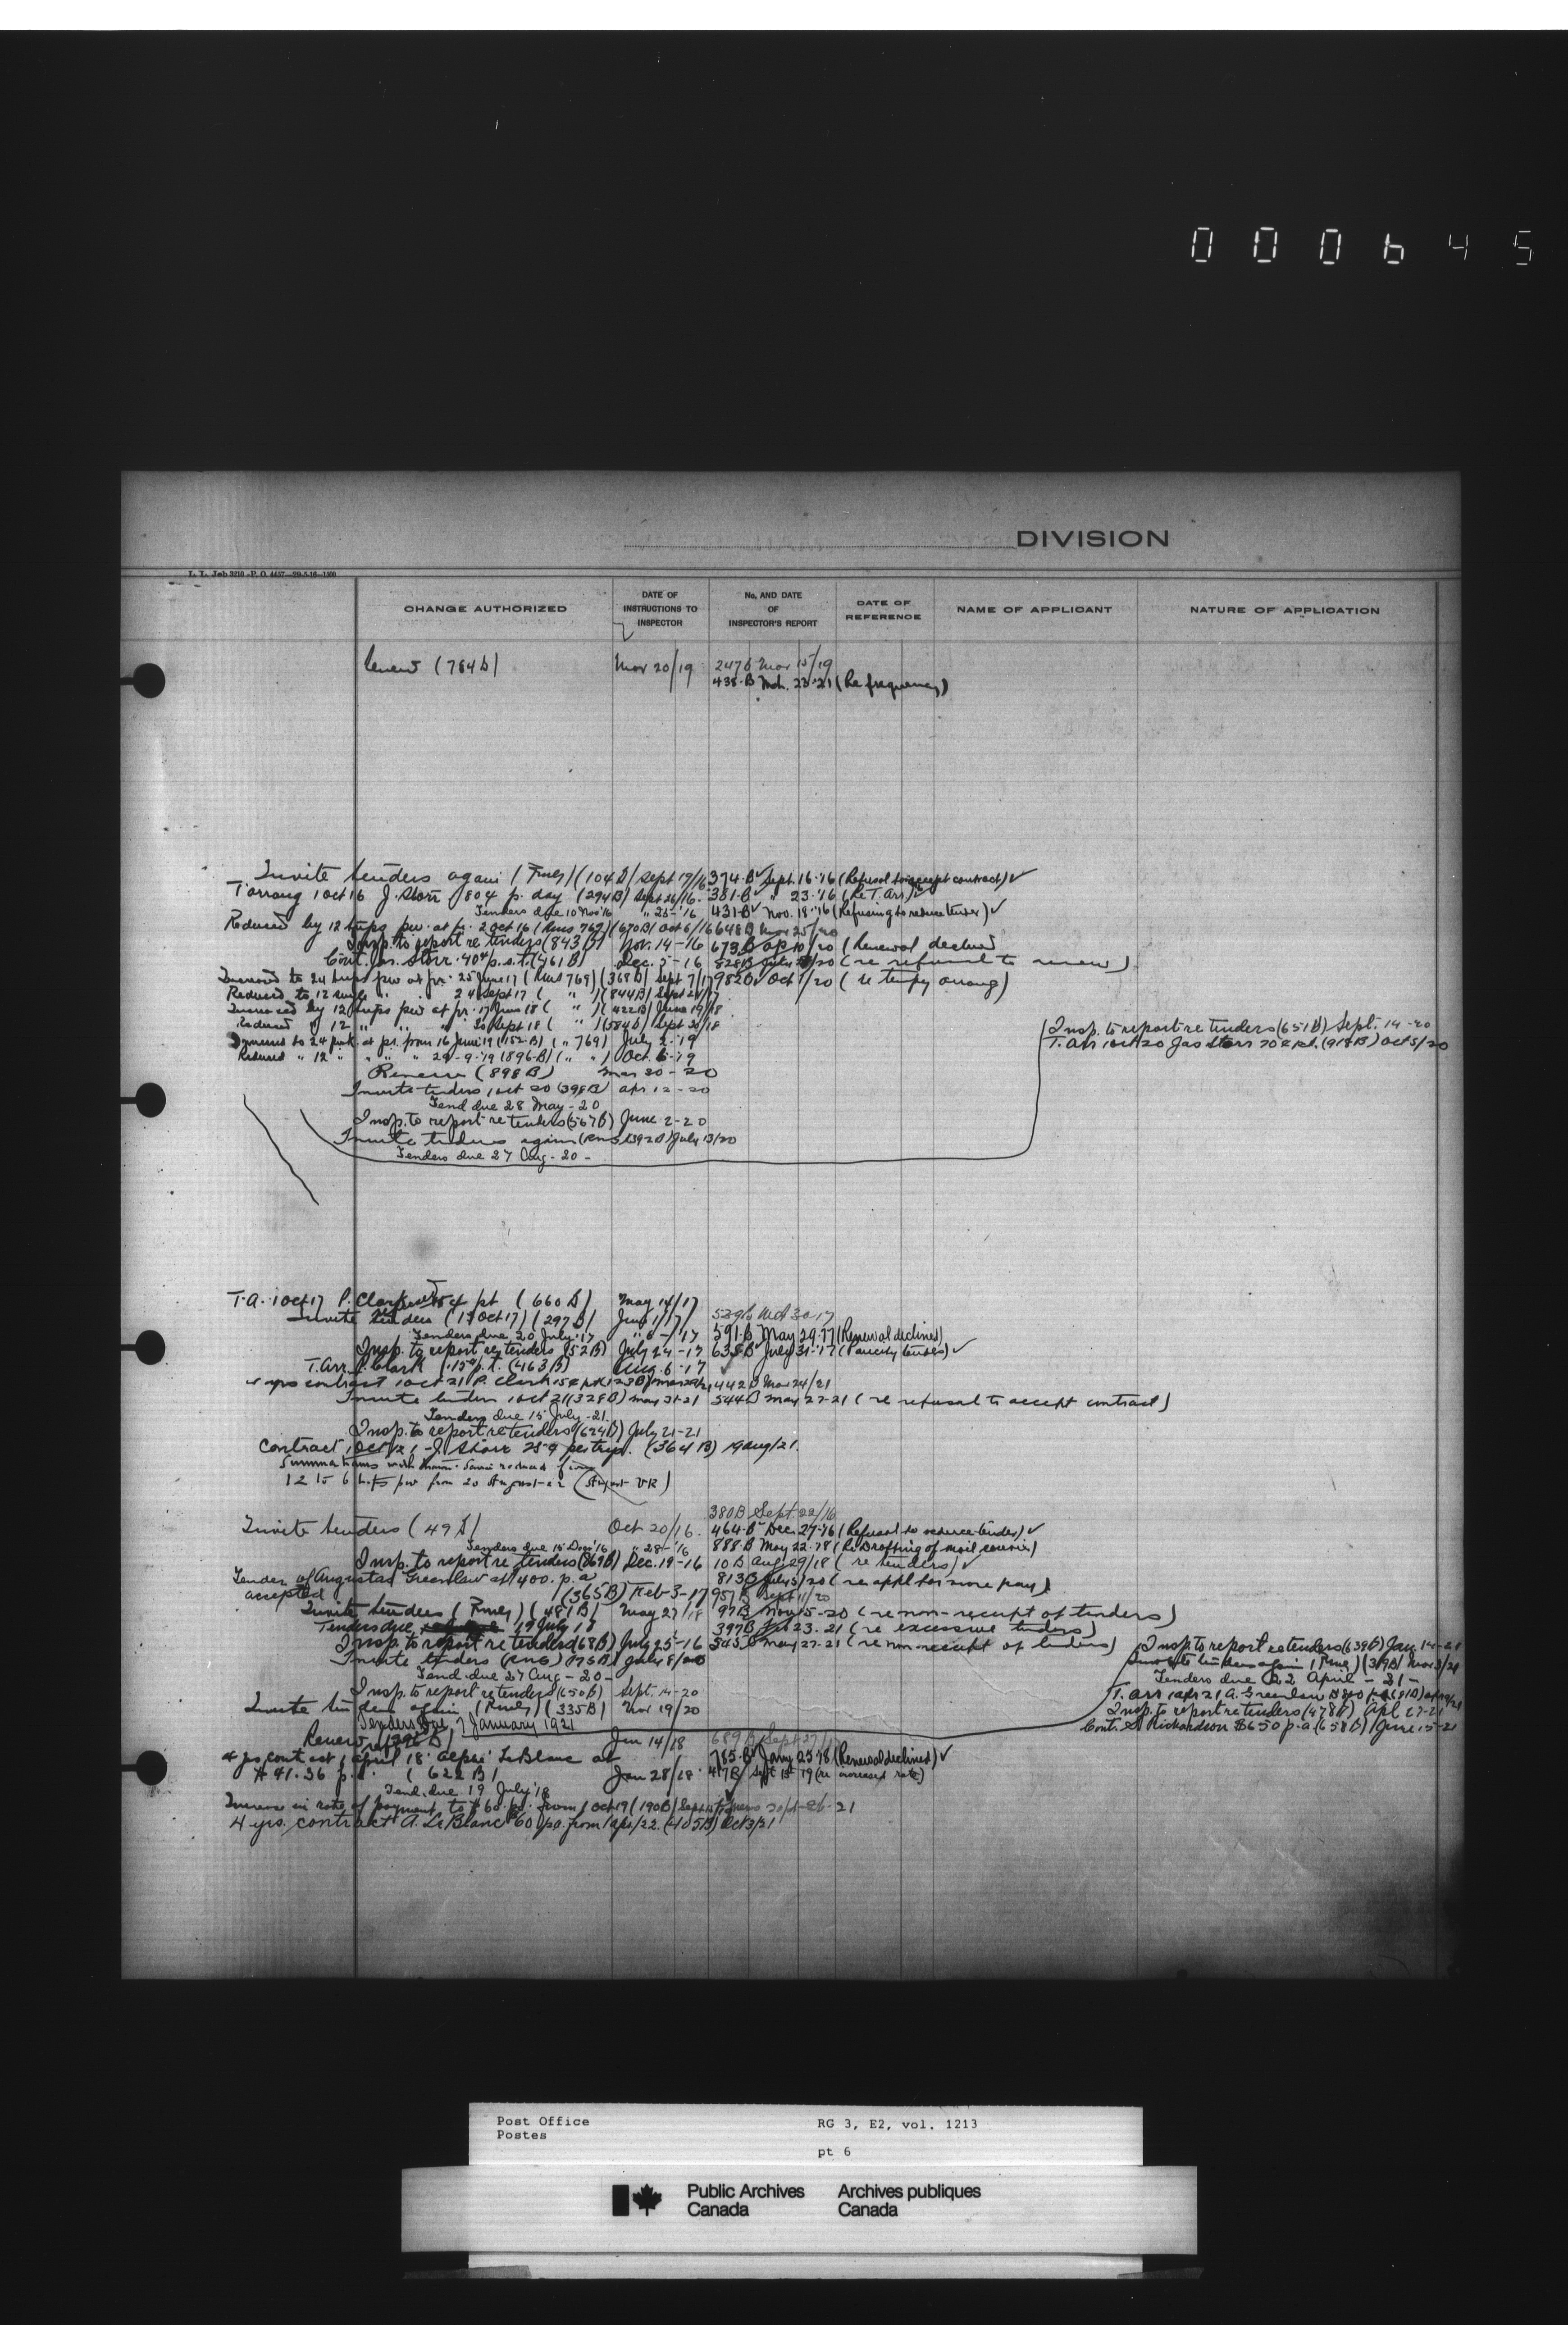 000645
DIVISION
L. T. Job 3210-P. O. 4457-29-5-16-1500
CHANGE AUTHORIZED
DATE OF INSTRUCTIONS TO INSPECTOR
No. AND DATE OF INSPECTOR'S REPORT
DATE OF REFERENCE
NAME OF APPLICANT
NATURE OF APPLICATION
Renew (784 D) Mar 20/19 247 B Mar 15/19
438-B Mch. 23-21 (Re frequency)
Invite tenders again (Rmey) (104 D) Sept 19/16 374-B Sept. 16-'16 (Refusal to accept contract) ✓
T arrang 1 Oct 16 J. Storr 80¢ p. day (294 B) Sept 26/16. 381-B " 23-'16 (Re T. Arr) ✓
Tenders due 10 Nov '16 " 25-'16 431-B Nov. 18-'16 (Refusing to reduce tender) ✓
Reduced by 12 trips pw. at fr. 2 Oct 16 (Rms 769) (670 B) Oct 6/16 648 B Mar 25/20
Insp. to report re tenders (843 B) Nov. 14-16 673 B Ap 10/20 (Renewal declined
Cont. Jas. Storr. 40¢ p.s.t. (461 B) Dec. 5-16 828 B July /20 (re refusal to renew)
Increased to 24 trips pw at fr. 25 June 17 (Rms 769) (368 B) Sept 7/17 982 B Oct 1/20 (re tempy arrang)
Reduced to 12 single " " 24 Sept 17 ( " ) (844 B) Sept 21/17
Increased by 12 trips pw at fr. 17 June 18 ( " ) (422 B) June 19/18
Reduced " 12 " " " 30 Sept 18 ( " ) (584 D) Sept 30/18
Increased to 24 p.w. at fr. from 16 June 19 (152-B) ( " 769) July 2-19
Reduced " 12 " " " " 29-9-19 (896-B) ( " " ) Oct. 6-19
Renew (898 B) Mar 30-20
Invite tenders 1 Oct 20 (398 B) Apr 12-20
Tend due 28 May-20
Insp. to report re tenders (567 B) June 2-20
Invite tenders again (Rms) (392 B) July 13/20
Tenders due 27 Aug-20-
Insp. to report re tenders (651 B) Sept. 14-20
T. Arr 1 Oct 20 Jas Storr 70¢ p.t. (918 B) Oct 5/20
T.A. 1 Oct 17 P. Clark 15¢ pt (660 D) May 14/17
Invite tenders (1 Oct 17) (297 B) June 1/17
Tenders due 20 July-17 " 6-17 591-B May 29-17 (Renewal declined)
Insp. to report re tenders (52 B) July 24-17 635 B July 31-17 ✓
T. Arr. P. Clark .15¢ p.t. (463 B) Aug. 6-17
4 yrs contract 1 Oct 21 P. Clark 15¢ pt (123 B) 442 B Mar 24/21
Invite tenders 1 Oct 21 (328 B) May 31-21 544 B May 27-21 (re refusal to accept contract)
Tenders due 15 July-21.
Insp. to report re tenders (624 B) July 21-21
Contract 1 Oct 21 J. Storr 25¢ per trip. (364 B) 19 Aug/21.
12 to 6 trips pw from 20 August-22
380 B Sept. 22/16
Invite tenders (49 D) Oct 20/16. 464-B Dec. 27-'16 (Refusal to reduce tender) ✓
Tenders due 15 Dec '16 " 28-'16 888-B May 22-'18 (Re Drafting of mail courier)
Insp. to report re tenders (869 B) Dec. 19-16 10 B Aug 29/18 (re tenders) ✓
Tender of Augustas Greenlaw at $400. p.a 813 B July 5/20 (re appl for more pay)
accepted (365 B) Feb 3-17 957 B Sept 11/20
Invite tenders (Rmey) (481 B) May 27/18 97 B Nov 15-20 (re non-receipt of tenders)
Tenders due 19 July 18 397 B Feb 23-21 (re excessive tenders)
Insp. to report re tenders (68 B) July 25-16 545 B May 27-21 (re non-receipt of tenders)
Invite tenders (Rms) (175 B) July 8/20
Tend due 27 Aug-20-
Insp. to report re tenders (650 B) Sept. 14-20
Invite tenders again (Rmey) (335 B) Nov 19/20
Tenders due 7 January 1921
Insp. to report re tenders (639 B) Jan. 14-21
Invite tenders again (Rmey) (319 B) Mar 3/21
Tenders due 22 April-21-
T. Arr 1 Apr 21 A. Greenlaw $800 p.a. (81 B) Apr 9/21
Insp. to report re tenders (478 B) Apl 27-21
Cont. S. Richardson $650 p.a (658 B) June 15-21
Renew (296 D) Jan 14/18 689 B Sept 27/17
4 yrs contract 1 April 18 LeBlanc at 785-B Jany 25-18 (Renewal declined) ✓
$41.36 p.a. (622 B) Jan 28/18 417 B Sept 15-19 (re increased rate)
Tend. due 19 July '18
Increase in rate of payment to $60 p.a. from 1 Oct 19 (190 B)
4 yrs. contract A. LeBlanc $60 p.a. from 1 Apr/22. (405 B) Oct 3/21
Post Office
Postes
RG 3, E2, vol. 1213
pt 6
Public Archives Canada
Archives publiques Canada